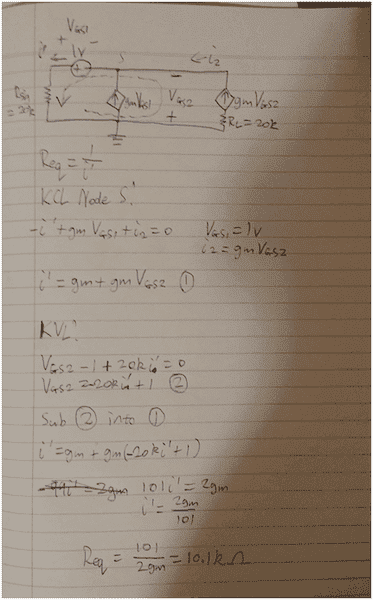 + VGS1 -
i' 1V S ←i2
+
Rsig = 20k
gmVGS1
-
VGS2
+
gmVGS2
RL=20k
Req = 1/i'
KCL Node S:
-i' + gm VGS1 + i2 = 0 VGS1 = 1V
i2 = gm VGS2
i' = gm + gm VGS2 ①
KVL:
VGS2 - 1 + 20k i' = 0
VGS2 = -20k i' + 1 ②
Sub ② into ①
i' = gm + gm(-20k i' + 1)
101 i' = 2gm
i' = 2gm/101
Req = 101/2gm = 10.1k Ω